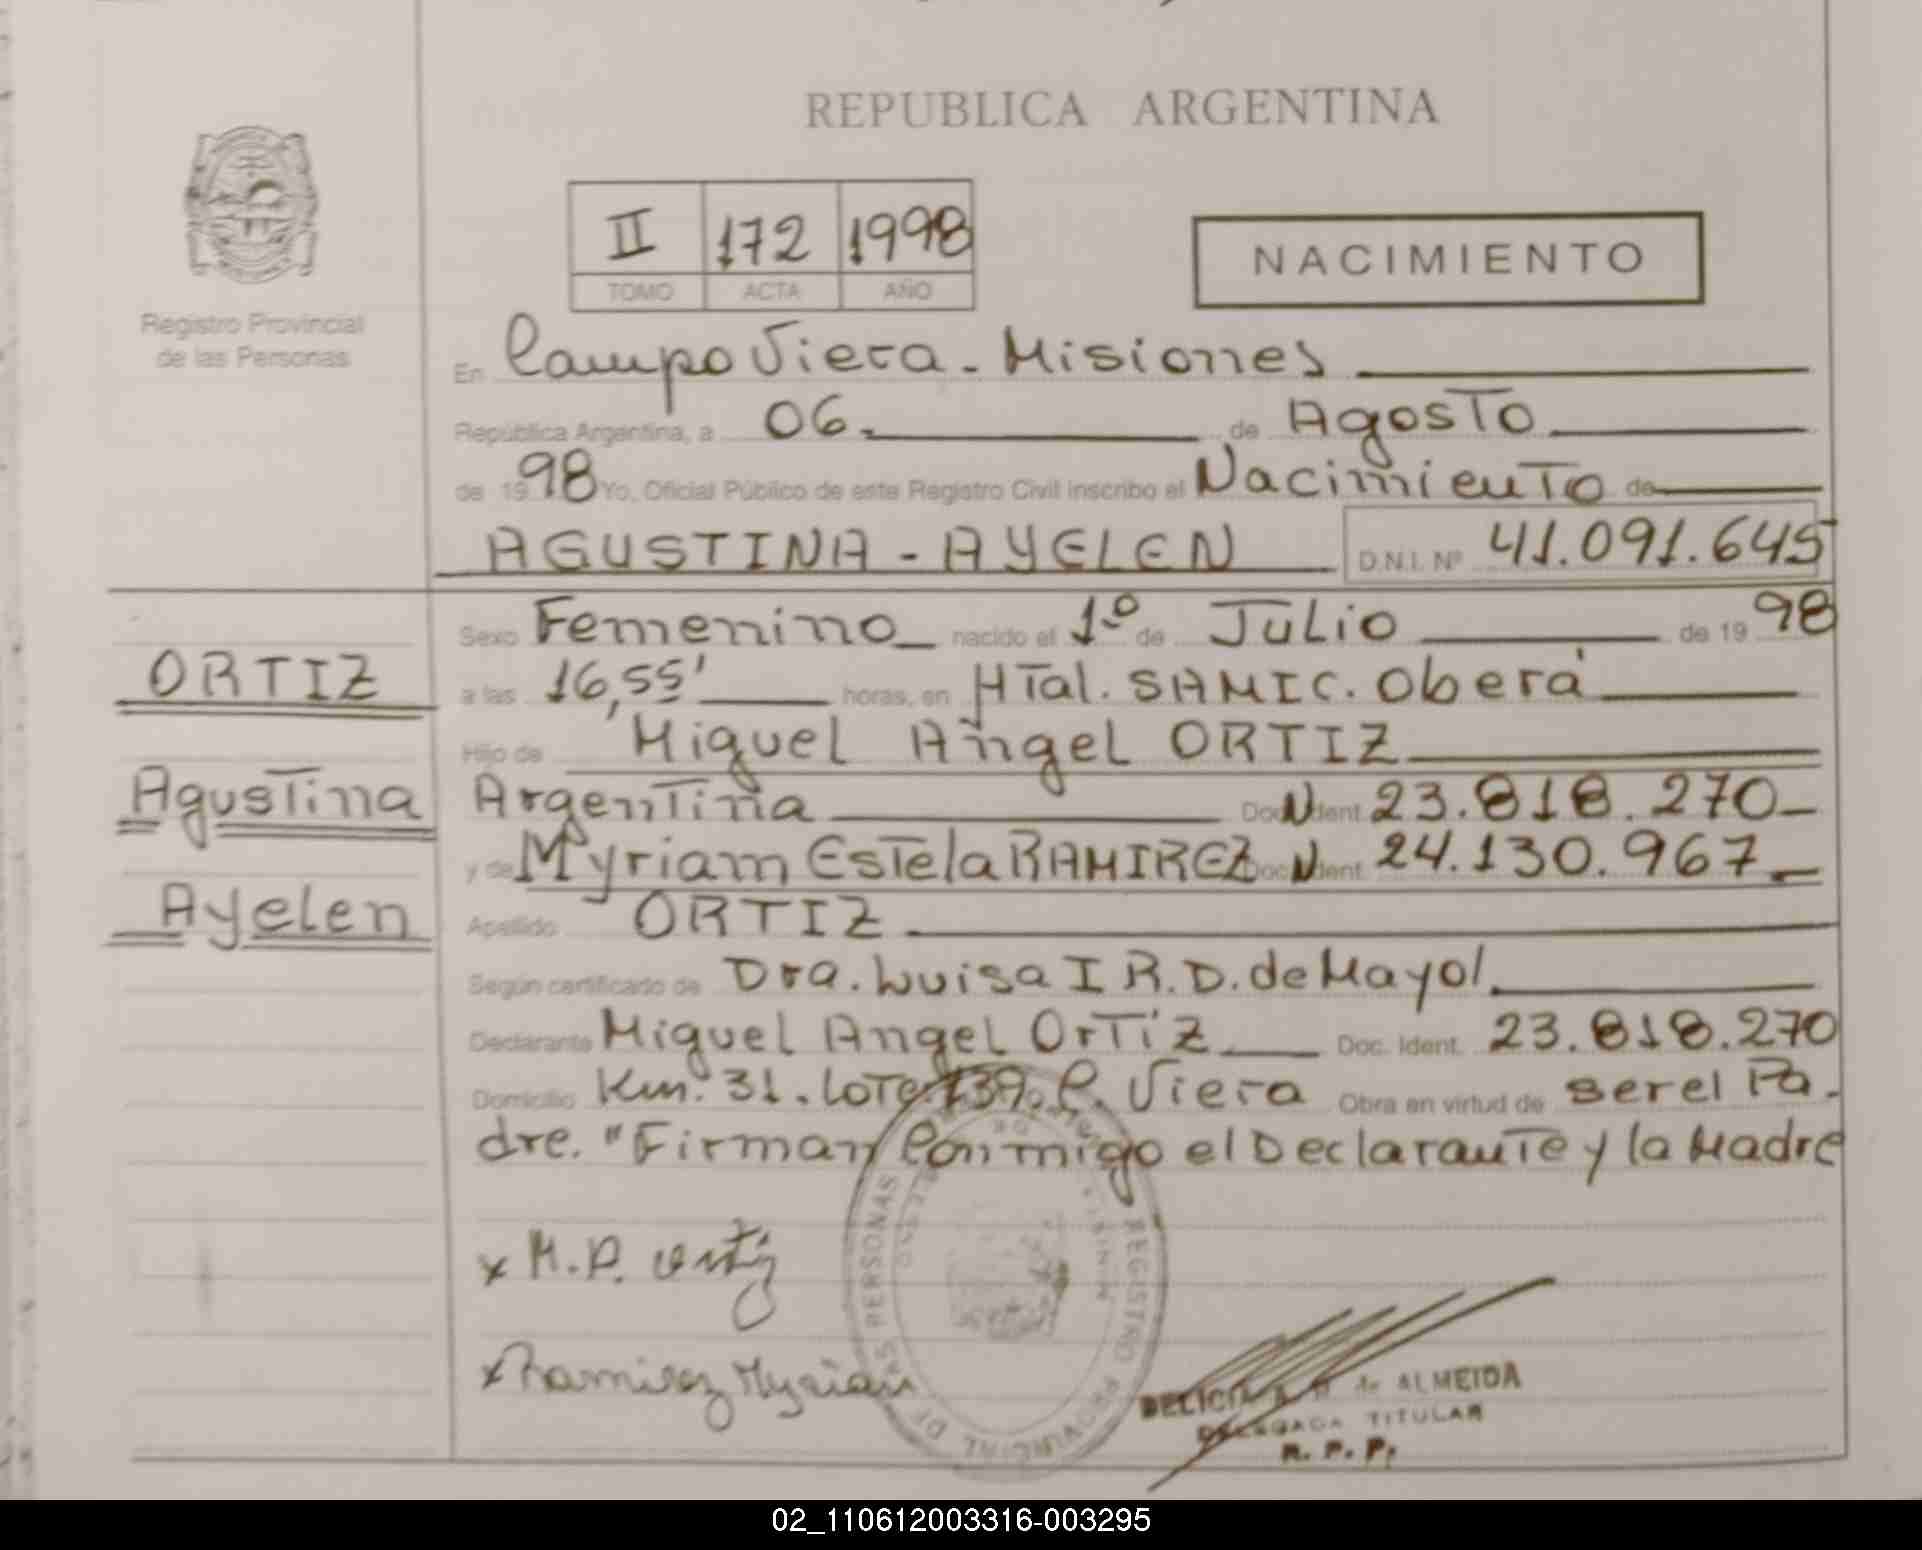 REPUBLICA ARGENTINA
Registro Provincial
de las Personas
II 172 1998
TOMO ACTA AÑO
NACIMIENTO
En Campo Viera - Misiones
República Argentina, a 06 de Agosto
de 1998 Yo, Oficial Público de este Registro Civil inscribo el Nacimiento de
AGUSTINA - AYELEN D.N.I. Nº 41.091.645
ORTIZ
Agustina
Ayelen
Sexo Femenino nacido el 1º de Julio de 1998
a las 16,55' horas, en HTal. SAMIC. Oberá
Hijo de Miguel Angel ORTIZ
Argentina Doc N Ident 23.818.270
y de Myriam Estela RAMIREZ Doc N Ident 24.130.967
Apellido ORTIZ
Según certificado de Dra. Luisa I R. D. de Mayol
Declarante Miguel Angel Ortiz Doc. Ident. 23.818.270
Domicilio Km. 31. Lote 139. C. Viera Obra en virtud de ser el Pa-
dre. "Firman Conmigo el Declarante y la Madre
x M.A. Ortiz
x Ramirez Myriam
REGISTRO PROVINCIAL DE LAS PERSONAS
DELICIA de ALMEIDA
DELEGADA TITULAR
R. P. P.
02_110612003316-003295